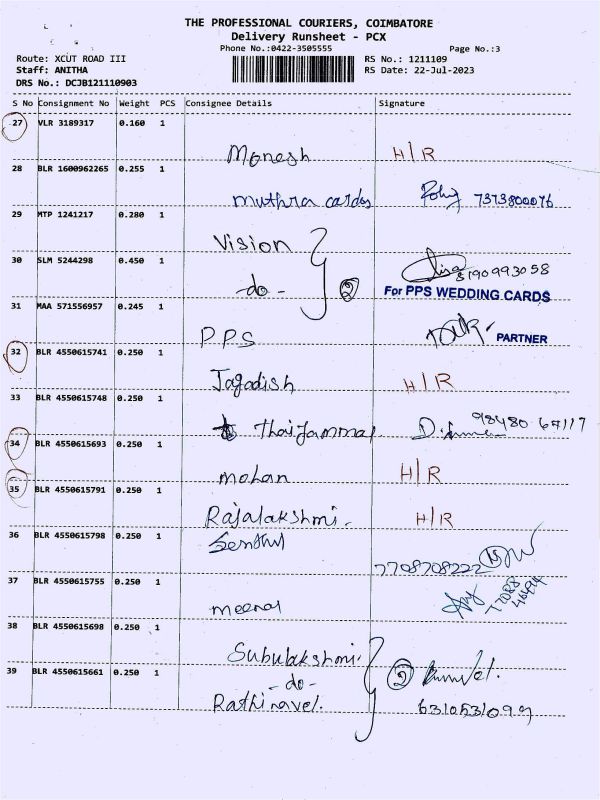 THE PROFESSIONAL COURIERS, COIMBATORE
Delivery Runsheet - PCX
Phone No.:0422-3505555 Page No.:3
Route: XCUT ROAD III RS No.: 1211109
Staff: ANITHA RS Date: 22-Jul-2023
DRS No.: DCJB121110903
S No Consignment No Weight PCS Consignee Details Signature
27 VLR 3189317 0.160 1 Monesh H/R
28 BLR 1600962265 0.255 1 muthra cards 7373800076
29 MTP 1241217 0.280 1 Vision
30 SLM 5244298 0.450 1 -do- 2 8190993058
For PPS WEDDING CARDS
31 MAA 571556957 0.245 1 PPS PARTNER
32 BLR 4550615741 0.250 1 Jagadish H/R
33 BLR 4550615748 0.250 1 Thaijammal
34 BLR 4550615693 0.250 1 mohan H/R
35 BLR 4550615791 0.250 1 Rajalakshmi. H/R
36 BLR 4550615798 0.250 1 Senthil 7708708222
37 BLR 4550615755 0.250 1
38 BLR 4550615698 0.250 1 Subulakshmi.
-do- 2
39 BLR 4550615661 0.250 1 Rathinavel.